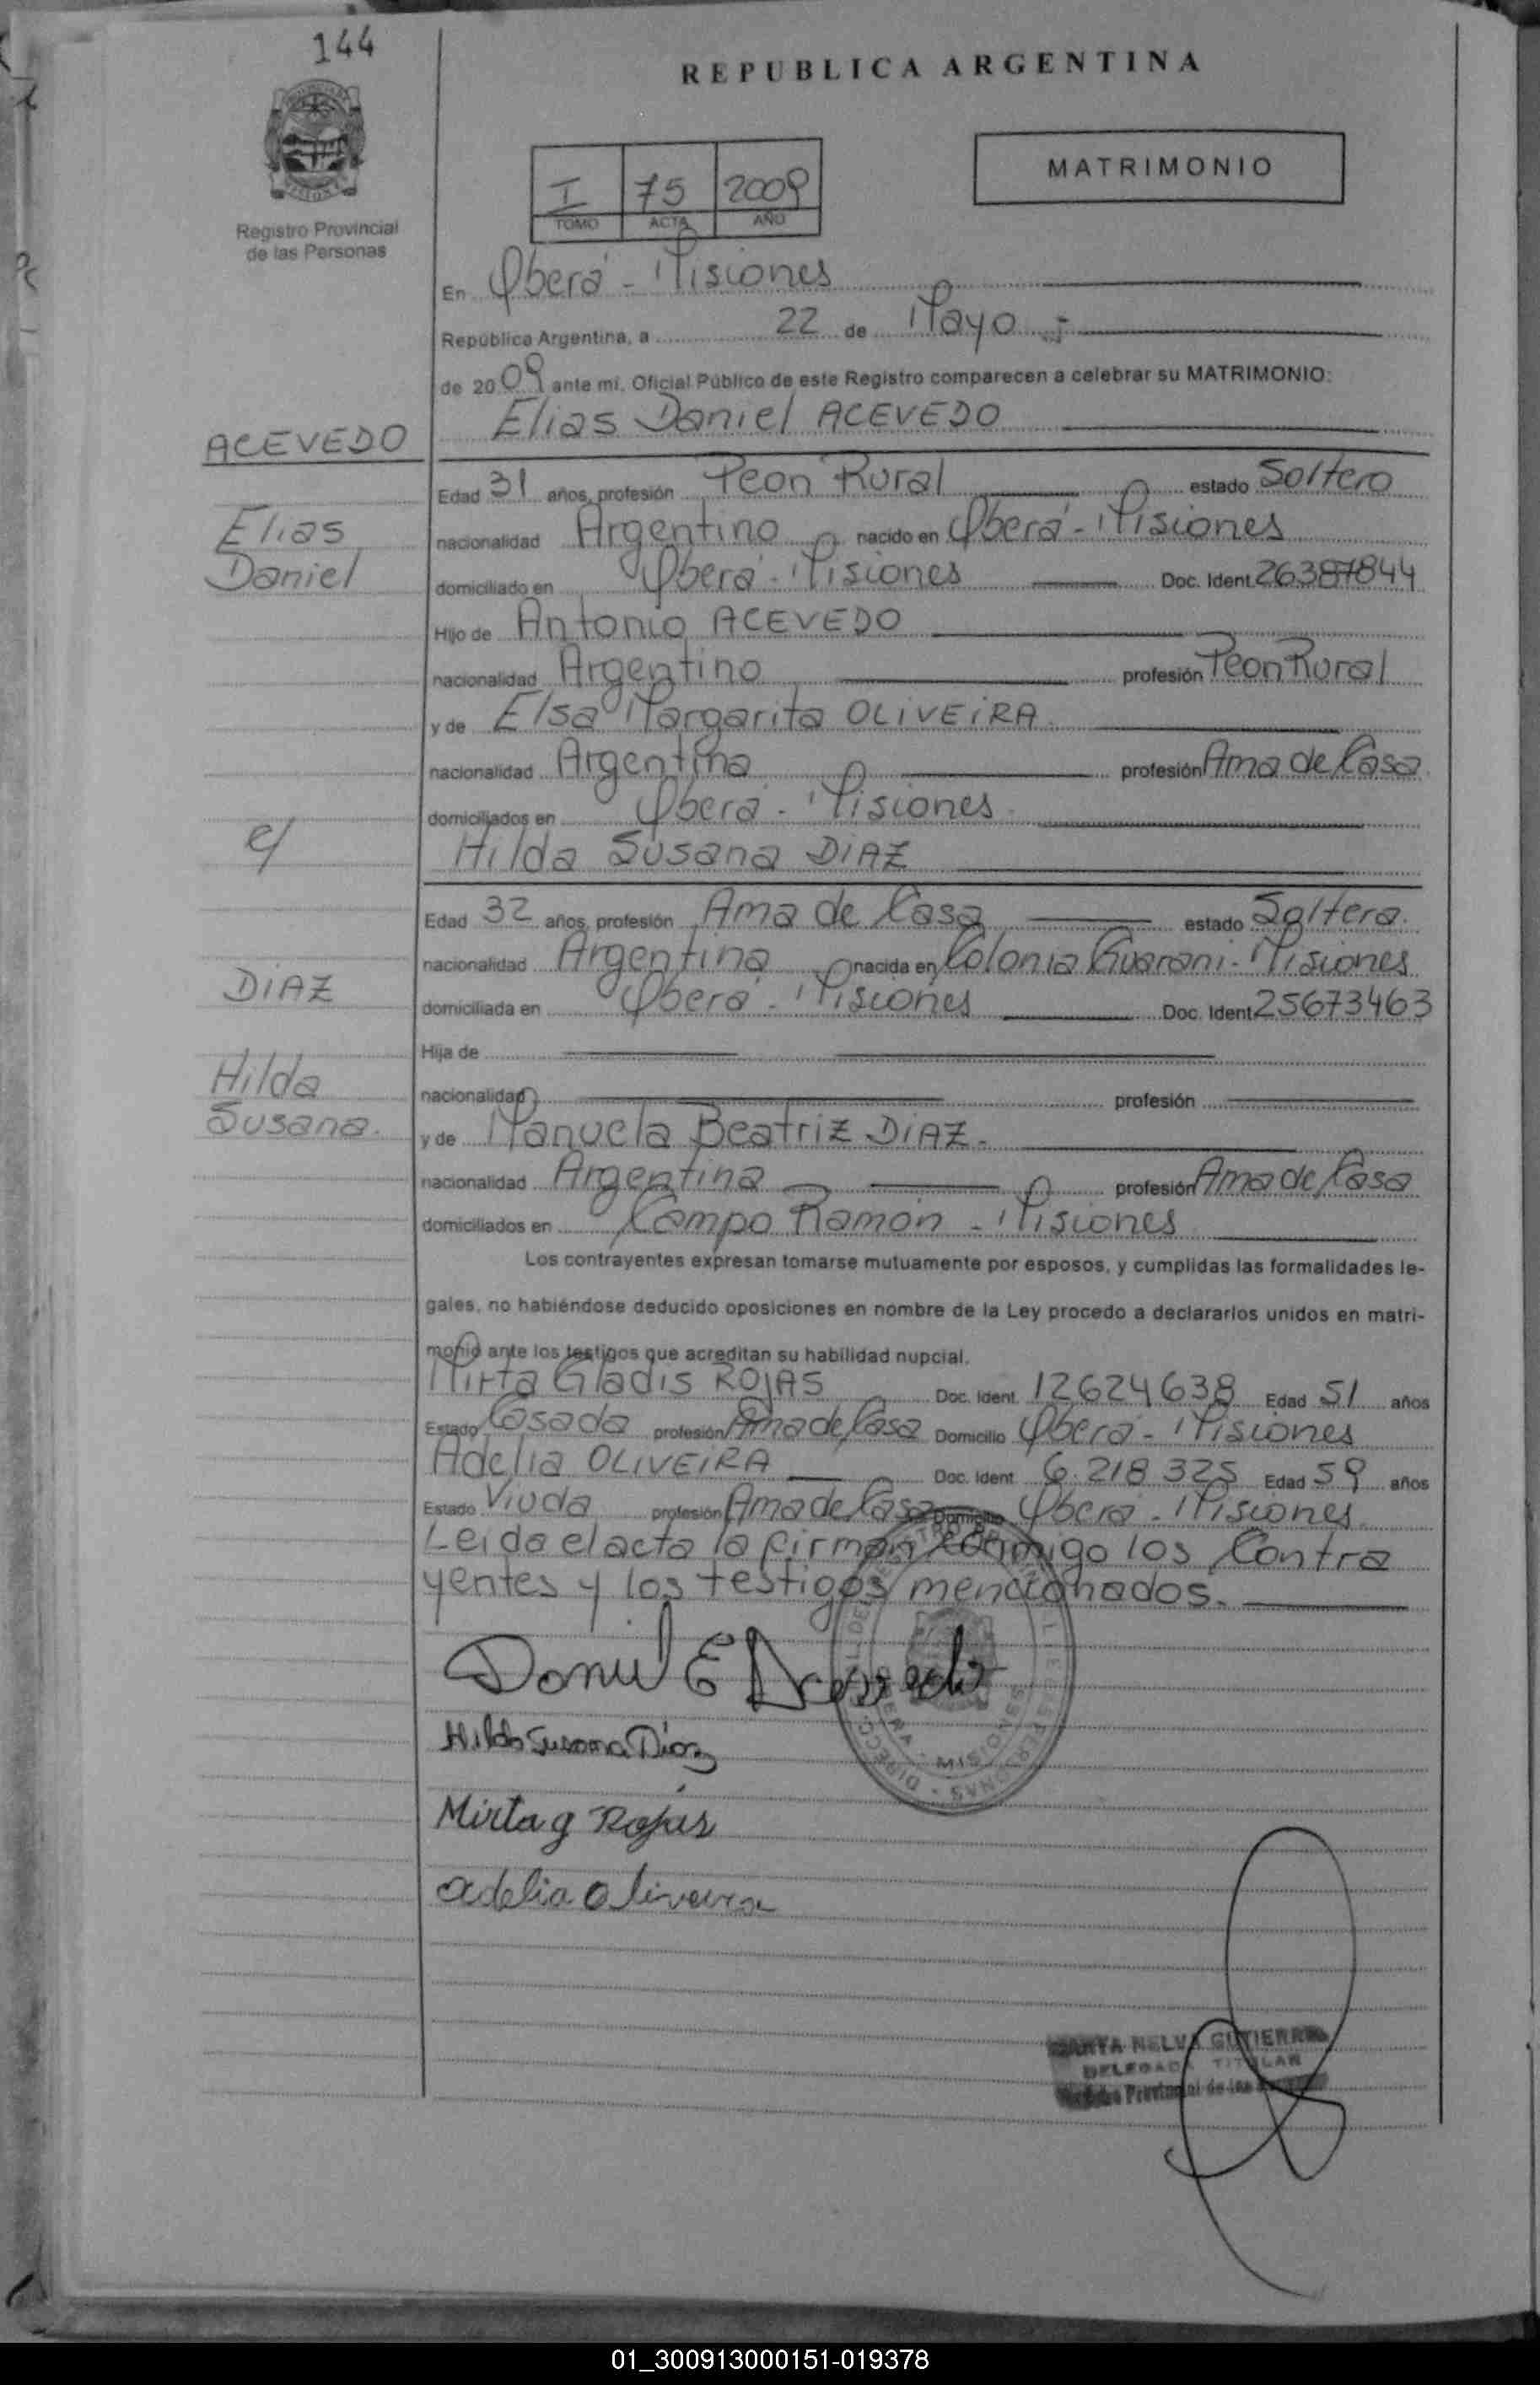 144
REPUBLICA ARGENTINA
MATRIMONIO
I 75 2009
TOMO ACTA AÑO
Registro Provincial
de las Personas
En Oberá - Misiones
República Argentina, a 22 de Mayo .-
de 2009 ante mi, Oficial Público de este Registro comparecen a celebrar su MATRIMONIO:
Elias Daniel ACEVEDO
ACEVEDO
Edad 31 años, profesión Peon Rural estado Soltero
Elias
nacionalidad Argentino nacido en Oberá - Misiones
Daniel
domiciliado en Oberá - Misiones Doc. Ident. 26387844
Hijo de Antonio ACEVEDO
nacionalidad Argentino profesión Peon Rural
y de Elsa Margarita OLIVEIRA
nacionalidad Argentina profesión Ama de Casa
domiciliados en Oberá - Misiones
c/
Hilda Susana DIAZ
Edad 32 años, profesión Ama de Casa estado Soltera.
nacionalidad Argentina nacida en Colonia Guarani - Misiones
DIAZ
domiciliada en Oberá - Misiones Doc. Ident. 25673463
Hija de
Hilda
nacionalidad profesión
Susana.
y de Manuela Beatriz DIAZ.-
nacionalidad Argentina profesión Ama de Casa
domiciliados en Campo Ramón - Misiones
Los contrayentes expresan tomarse mutuamente por esposos, y cumplidas las formalidades le-
gales, no habiéndose deducido oposiciones en nombre de la Ley procedo a declararlos unidos en matri-
monio ante los testigos que acreditan su habilidad nupcial.
Mirta Gladis ROJAS Doc. Ident. 12624638 Edad 51 años
Estado Casada profesión Ama de Casa Domicilio Oberá - Misiones
Adelia OLIVEIRA Doc. Ident. 6.218.325 Edad 59 años
Estado Viuda profesión Ama de Casa Domicilio Oberá - Misiones
Leida el acta la firman conmigo los Contra
yentes y los testigos mencionados.
Daniel E Acevedo
Hilda Susana Diaz
Mirta g Rojas
adelia oliveira
MISIONES
NELVA GUTIERREZ
DELEGADA TITULAR
Provincial de las
01_300913000151-019378